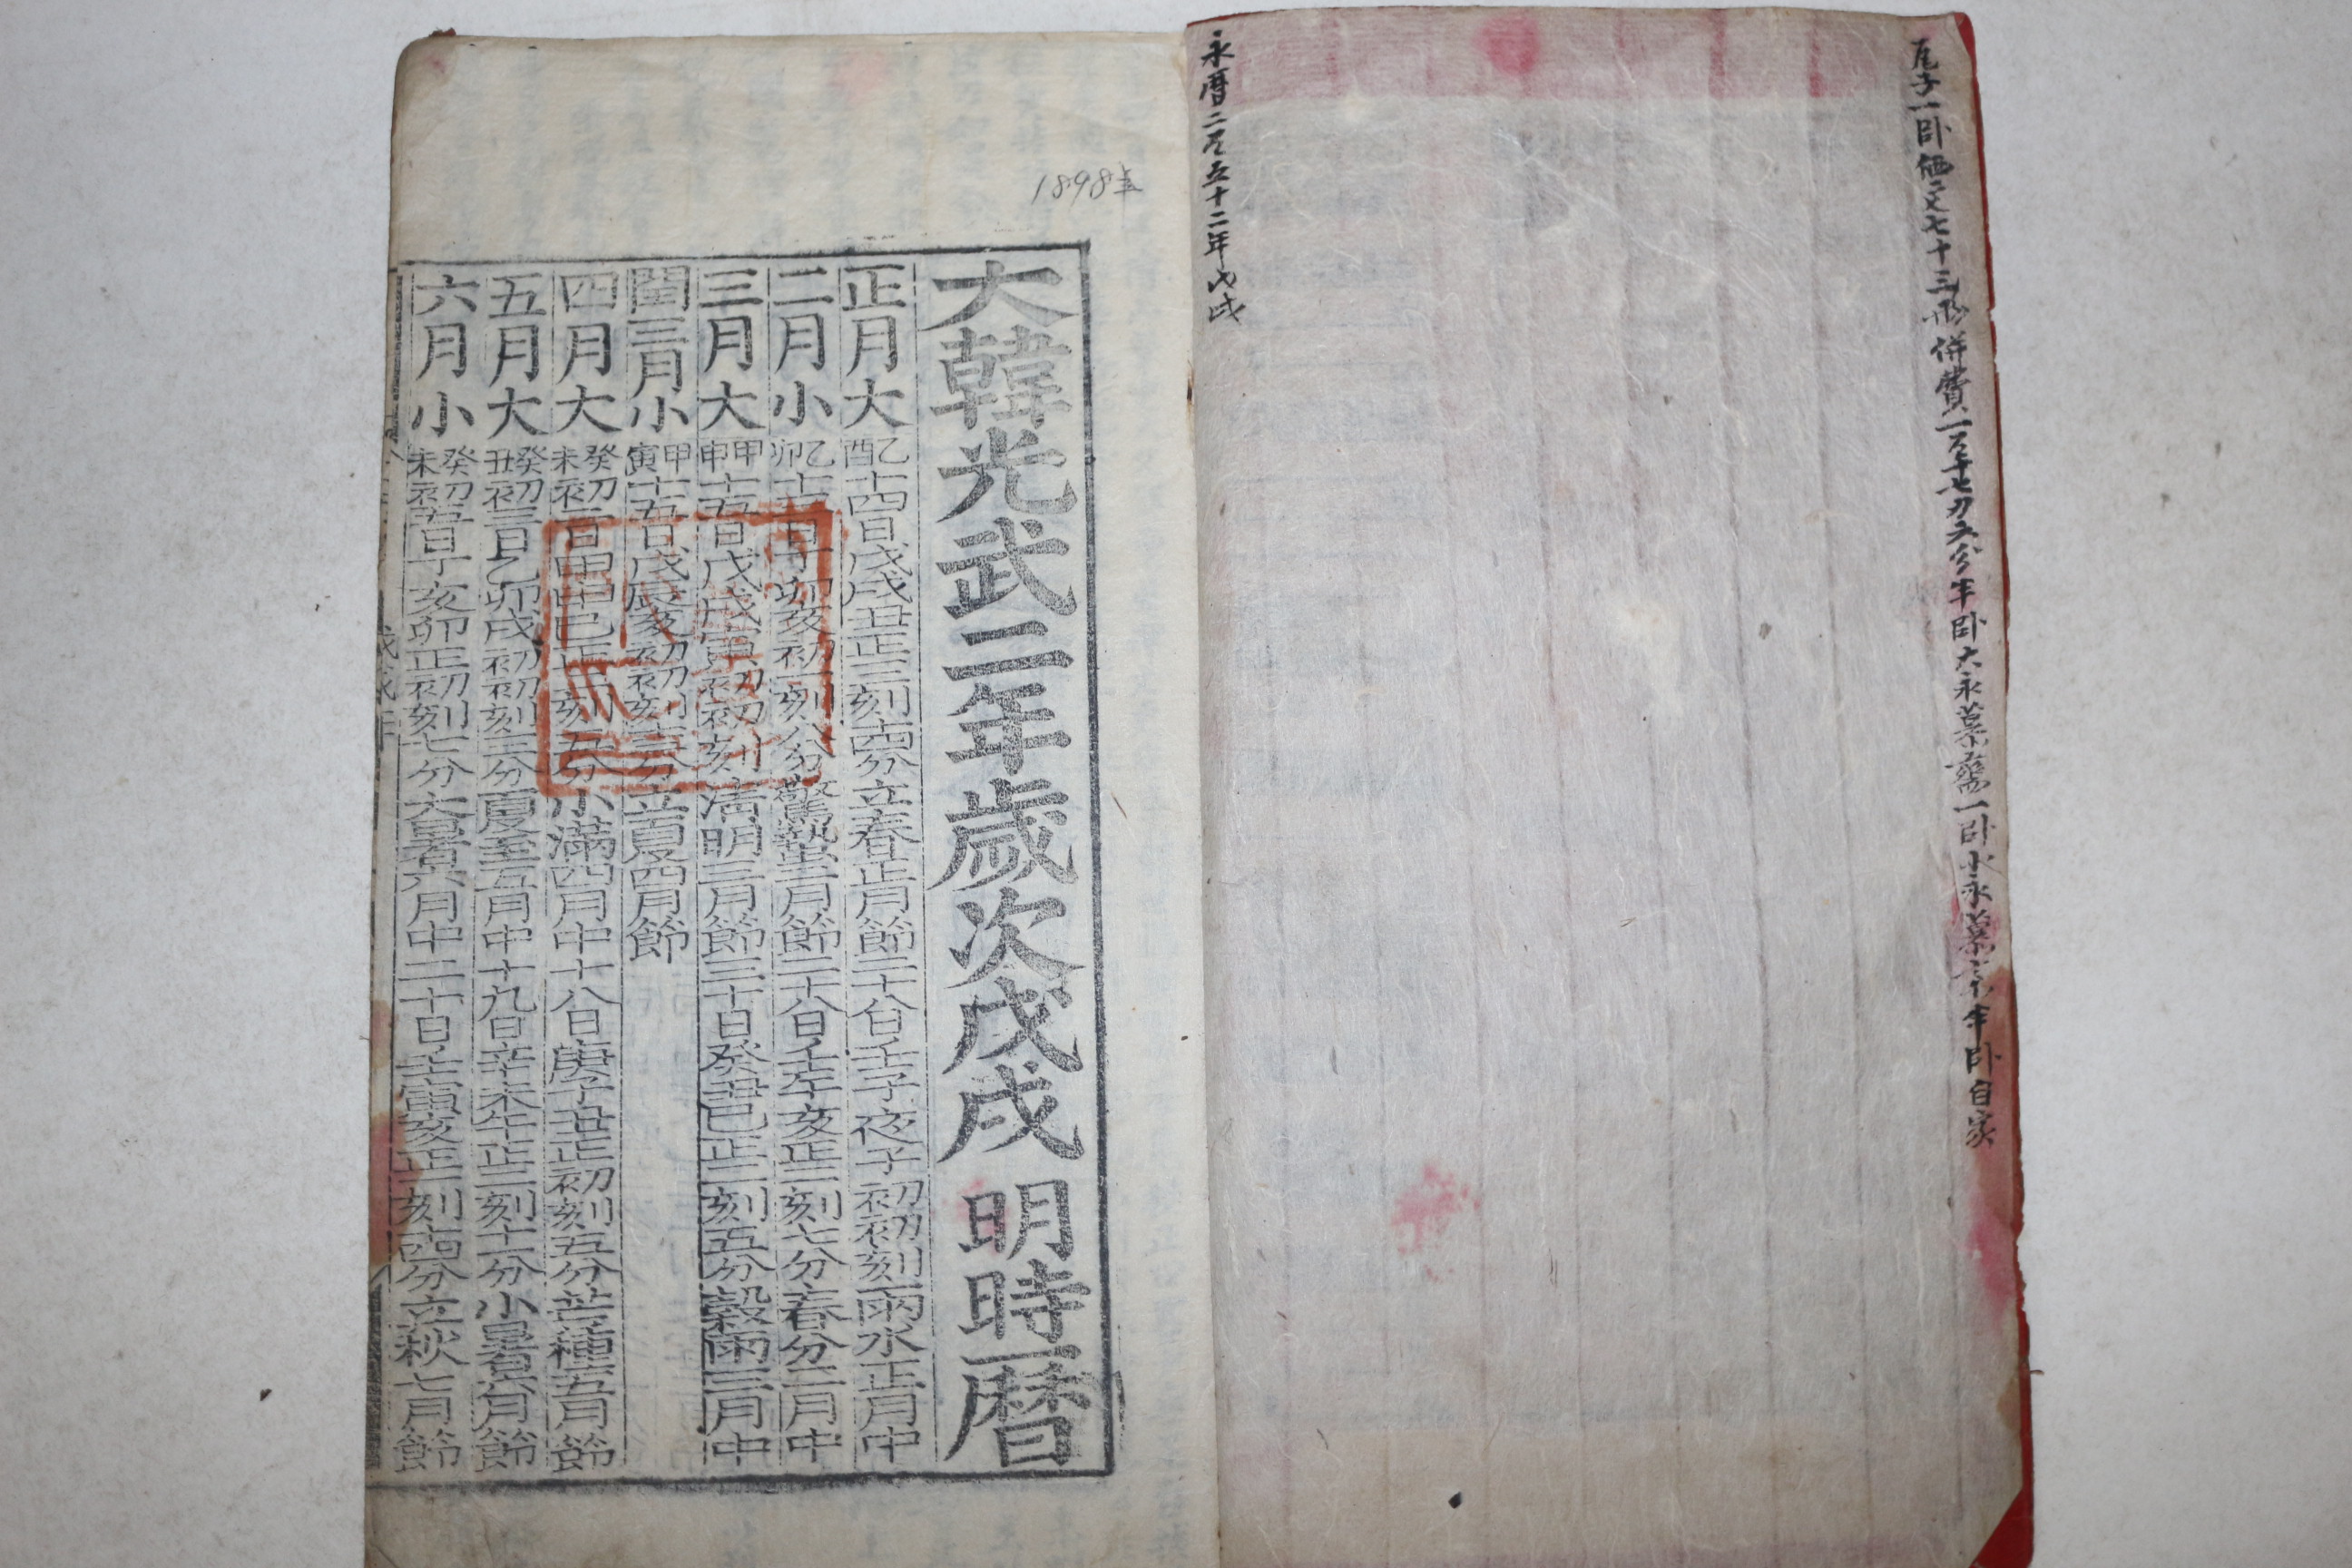 永曆二百五十二年戊戌
1898年
大韓光武二年歲次戊戌 明時曆
正月大 乙酉 十四日戊戌丑正三刻十四分立春正月節二十八日壬子夜子初初刻雨水正月中
二月小 乙卯 十三日丁卯亥初一刻八分驚蟄二月節二十八日壬午亥正二刻七分春分二月中
三月大 甲申 十五日戊戌寅初初刻清明三月節三十日癸丑巳正二刻五分穀雨三月中
閏三月小 甲寅 十五日戊辰亥初初刻十三分立夏四月節
四月大 癸未 初二日甲申巳正一刻五分小滿四月中十八日庚子丑正初刻五分芒種五月節
五月大 癸丑 初三日乙卯戌初初刻三分夏至五月中十九日辛未午正二刻十一分小暑六月節
六月小 癸未 初五日丁亥卯正初刻七分大暑六月中二十日壬寅亥正一刻十四分立秋七月節